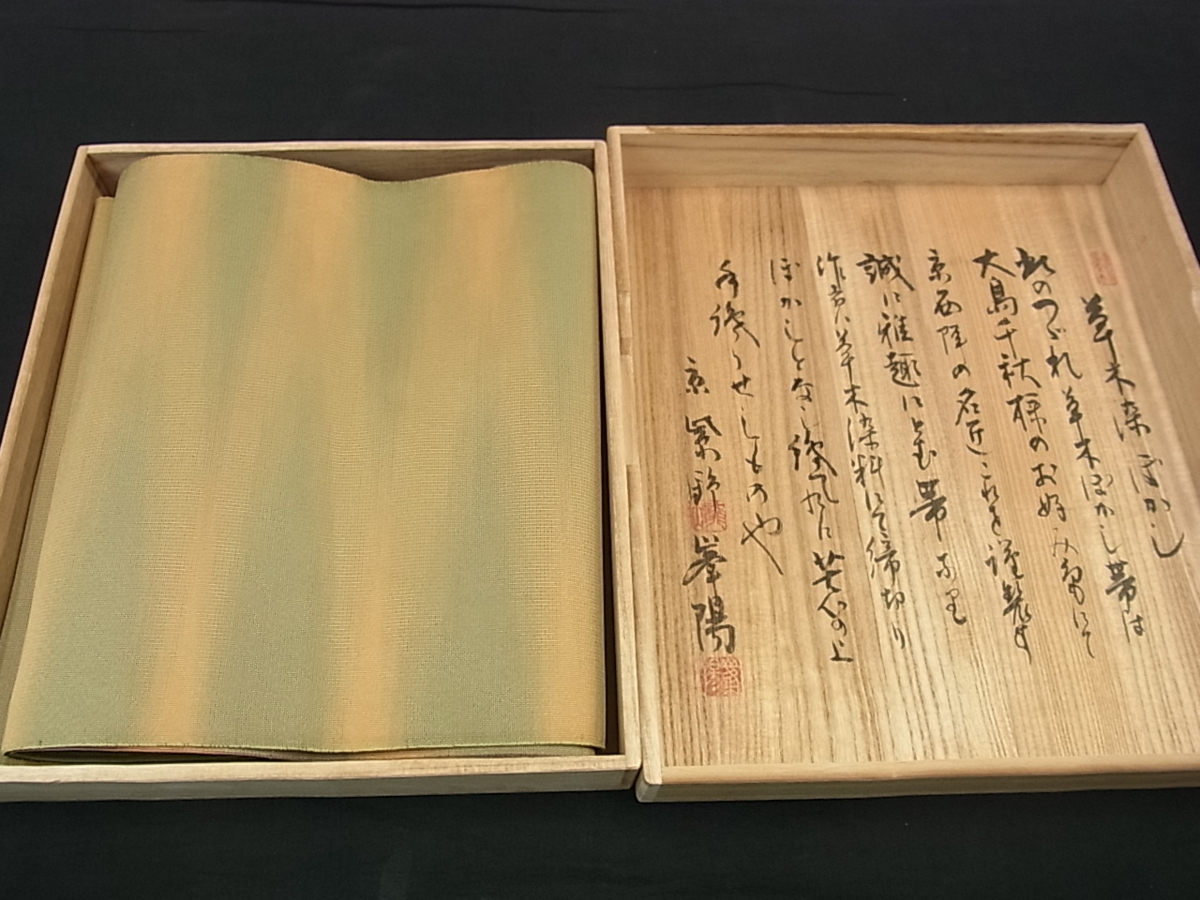 草木染ぼかし
此のつづれ草木ぼかし帯は
大島千秋様のお好みにて
京西陣の名匠これを謹製す
誠に雅趣にとむ帯なり
作者は草木染料にて締切り
ぼかしとなし織九に苦心の上
手織りせしものや
京 紫錦 峯陽